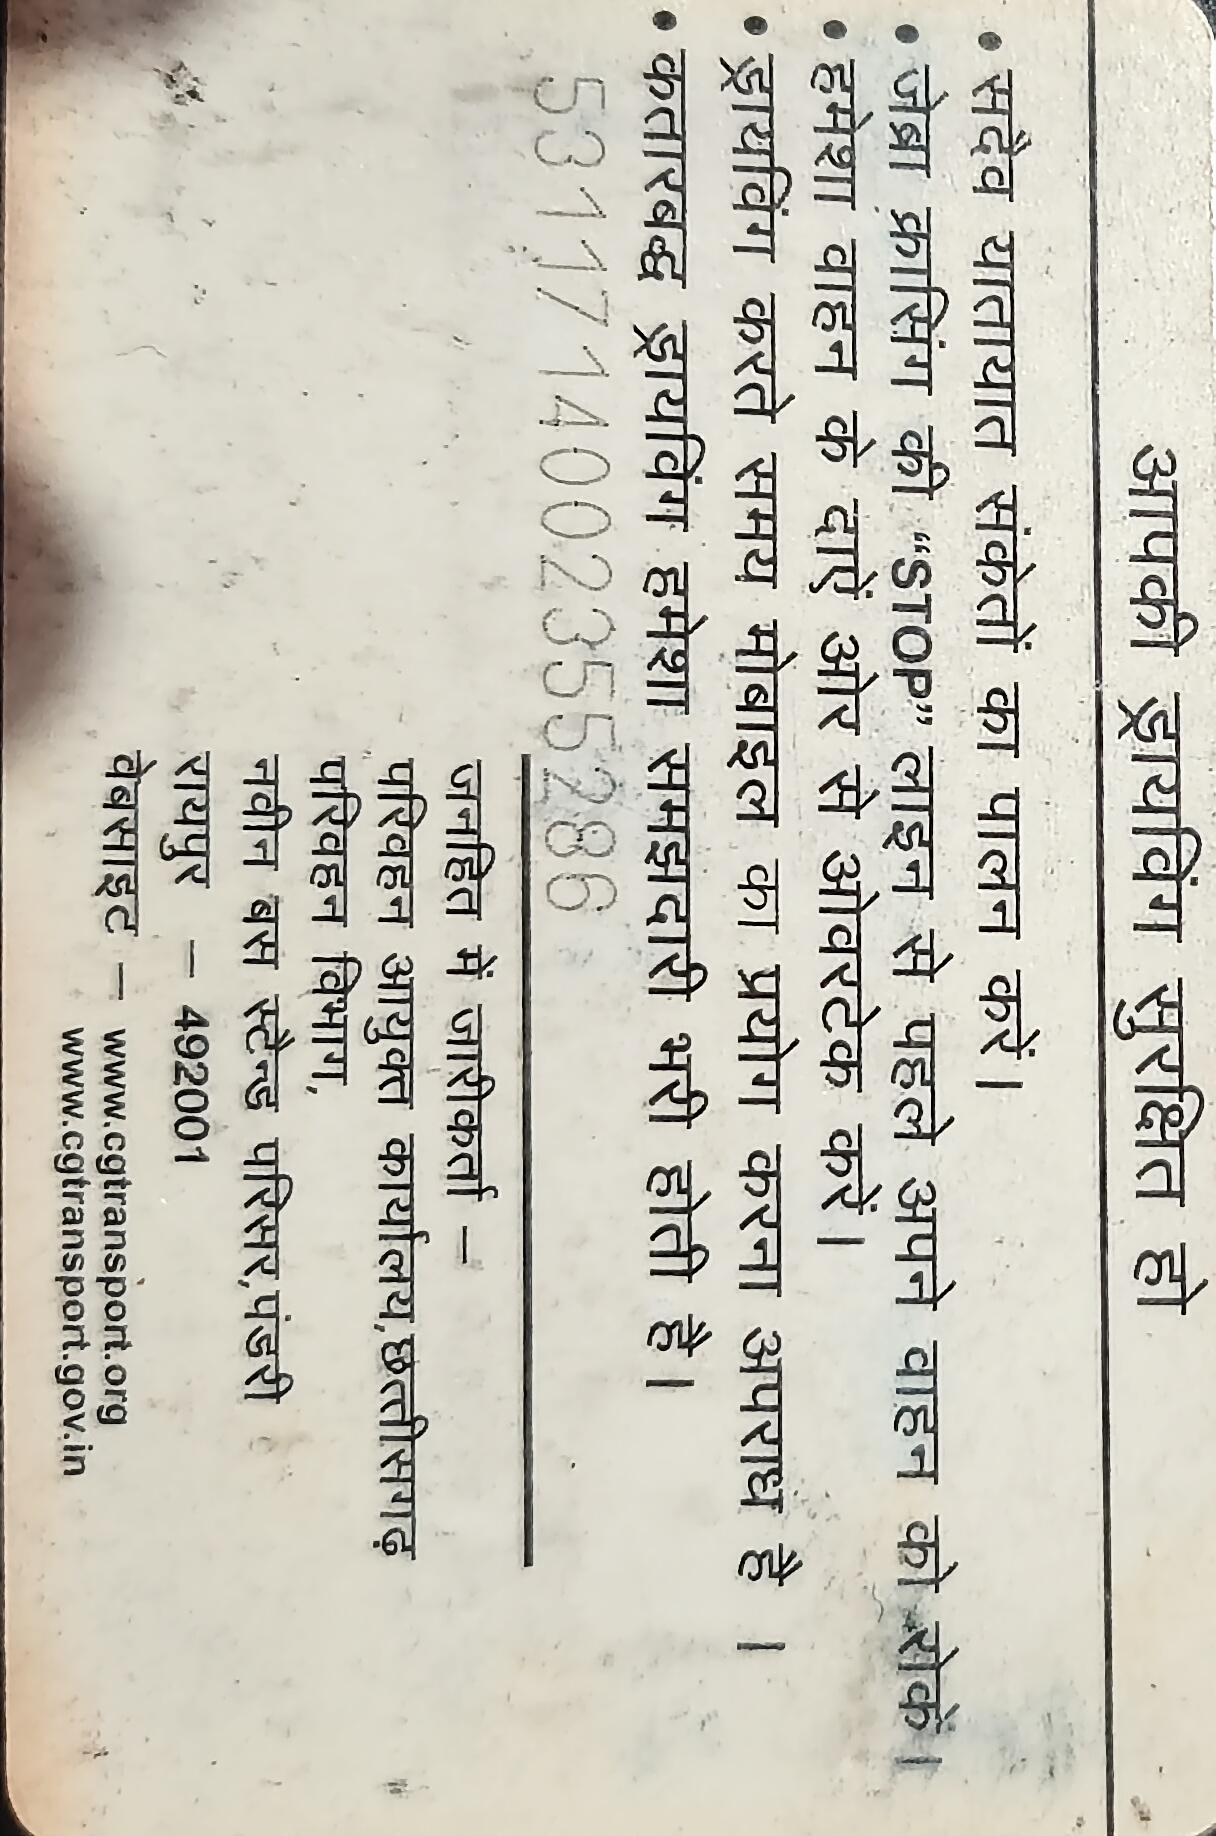 आपकी ड्रायविंग सुरक्षित हो
• सदैव यातायात संकेतों का पालन करें।
• जेब्रा क्रासिंग की “STOP” लाइन से पहले अपने वाहन को रोकें।
• हमेशा वाहन के दाएं ओर से ओवरटेक करें।
• ड्रायविंग करते समय मोबाइल का प्रयोग करना अपराध है ।
• कतारबद्ध ड्रायविंग हमेशा समझदारी भरी होती है।
5311714002355286
जनहित में जारीकर्ता –
परिवहन आयुक्त कार्यालय,छत्तीसगढ़
परिवहन विभाग,
नवीन बस स्टेन्ड परिसर,पंडरी
रायपुर – 492001
वेबसाइट – www.cgtransport.org
www.cgtransport.gov.in